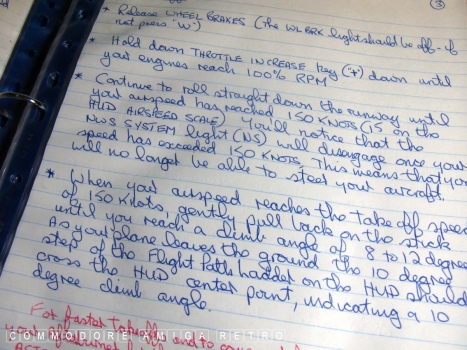 ③
* Release WHEEL BRAKES (the WL BRK light should be off - if
not press 'W')
* Hold down THROTTLE INCREASE key (+) down until
your engines reach 100% RPM
* Continue to roll straight down the runway until
your airspeed has reached 150 KNOTS (15 on the
HUD AIRSPEED SCALE) You'll notice that the
NWS SYSTEM light (NS) will disengage once your
speed has exceeded 150 KNOTS. This means that you
will no longer be able to steer your aircraft.
* When your airspeed reaches the take off speed
of 150 Knots, gently pull back on the stick
until you reach a climb angle of 8 to 12 degrees
As your plane leaves the ground the 10 degree
step of the Flight Path ladder on the HUD should
cross the HUD center point, indicating a 10
degree climb angle.
For faster takeoffs and to
your afterburner
COMMODORE AMIGA RETRO